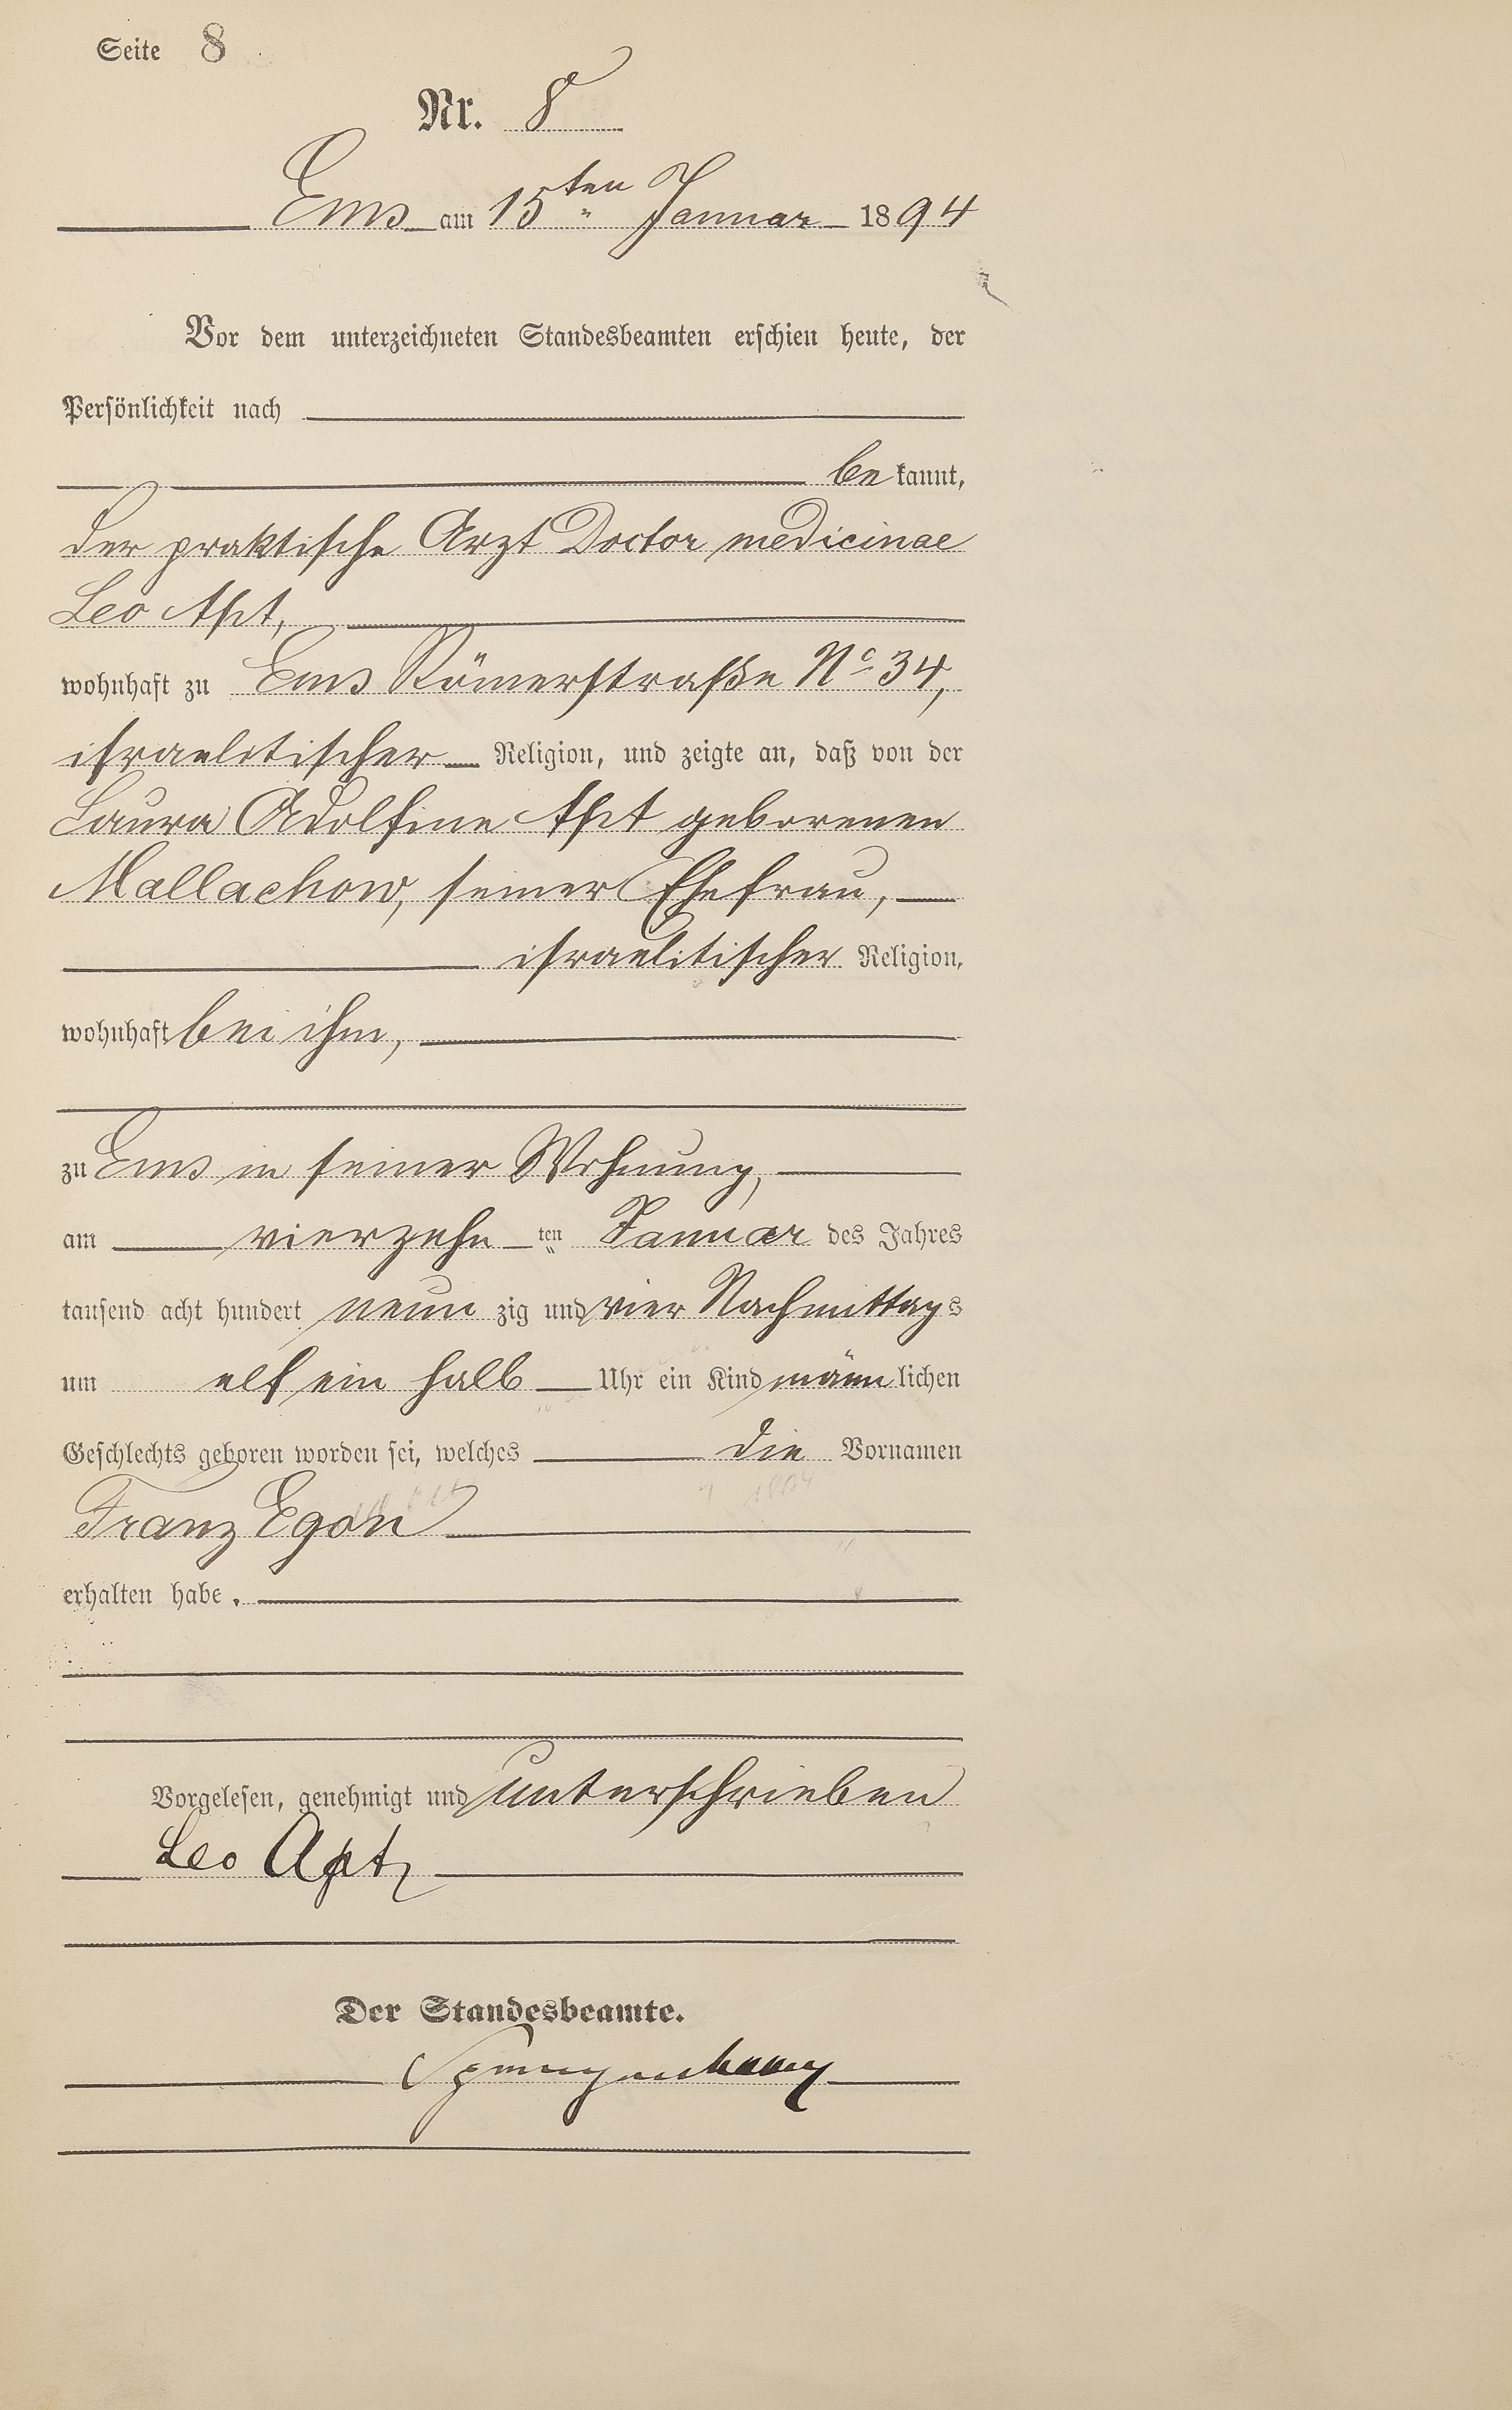 Seite 8
Nr. 8
Ems am 15ten Januar 1894
Vor dem unterzeichneten Standesbeamten erschien heute, der
Persönlichkeit nach
bekannt,
der praktische Arzt Doctor medicinae
Leo Apt,
wohnhaft zu Ems Römerstraße No 34,
israelitischer Religion, und zeigte an, daß von der
Laura Adolfine Apt geborenen
Mallachow, seiner Ehefrau,
israelitischer Religion,
wohnhaft bei ihm,
zu Ems in seiner Wohnung,
am vierzehnten Januar des Jahres
tausend acht hundert neunzig und vier Nachmittags
um elf ein halb Uhr ein Kind männlichen
Geschlechts geboren worden sei, welches die Vornamen
Franz Egon
erhalten habe.
Vorgelesen, genehmigt und unterschrieben
Leo Apt
Der Standesbeamte.